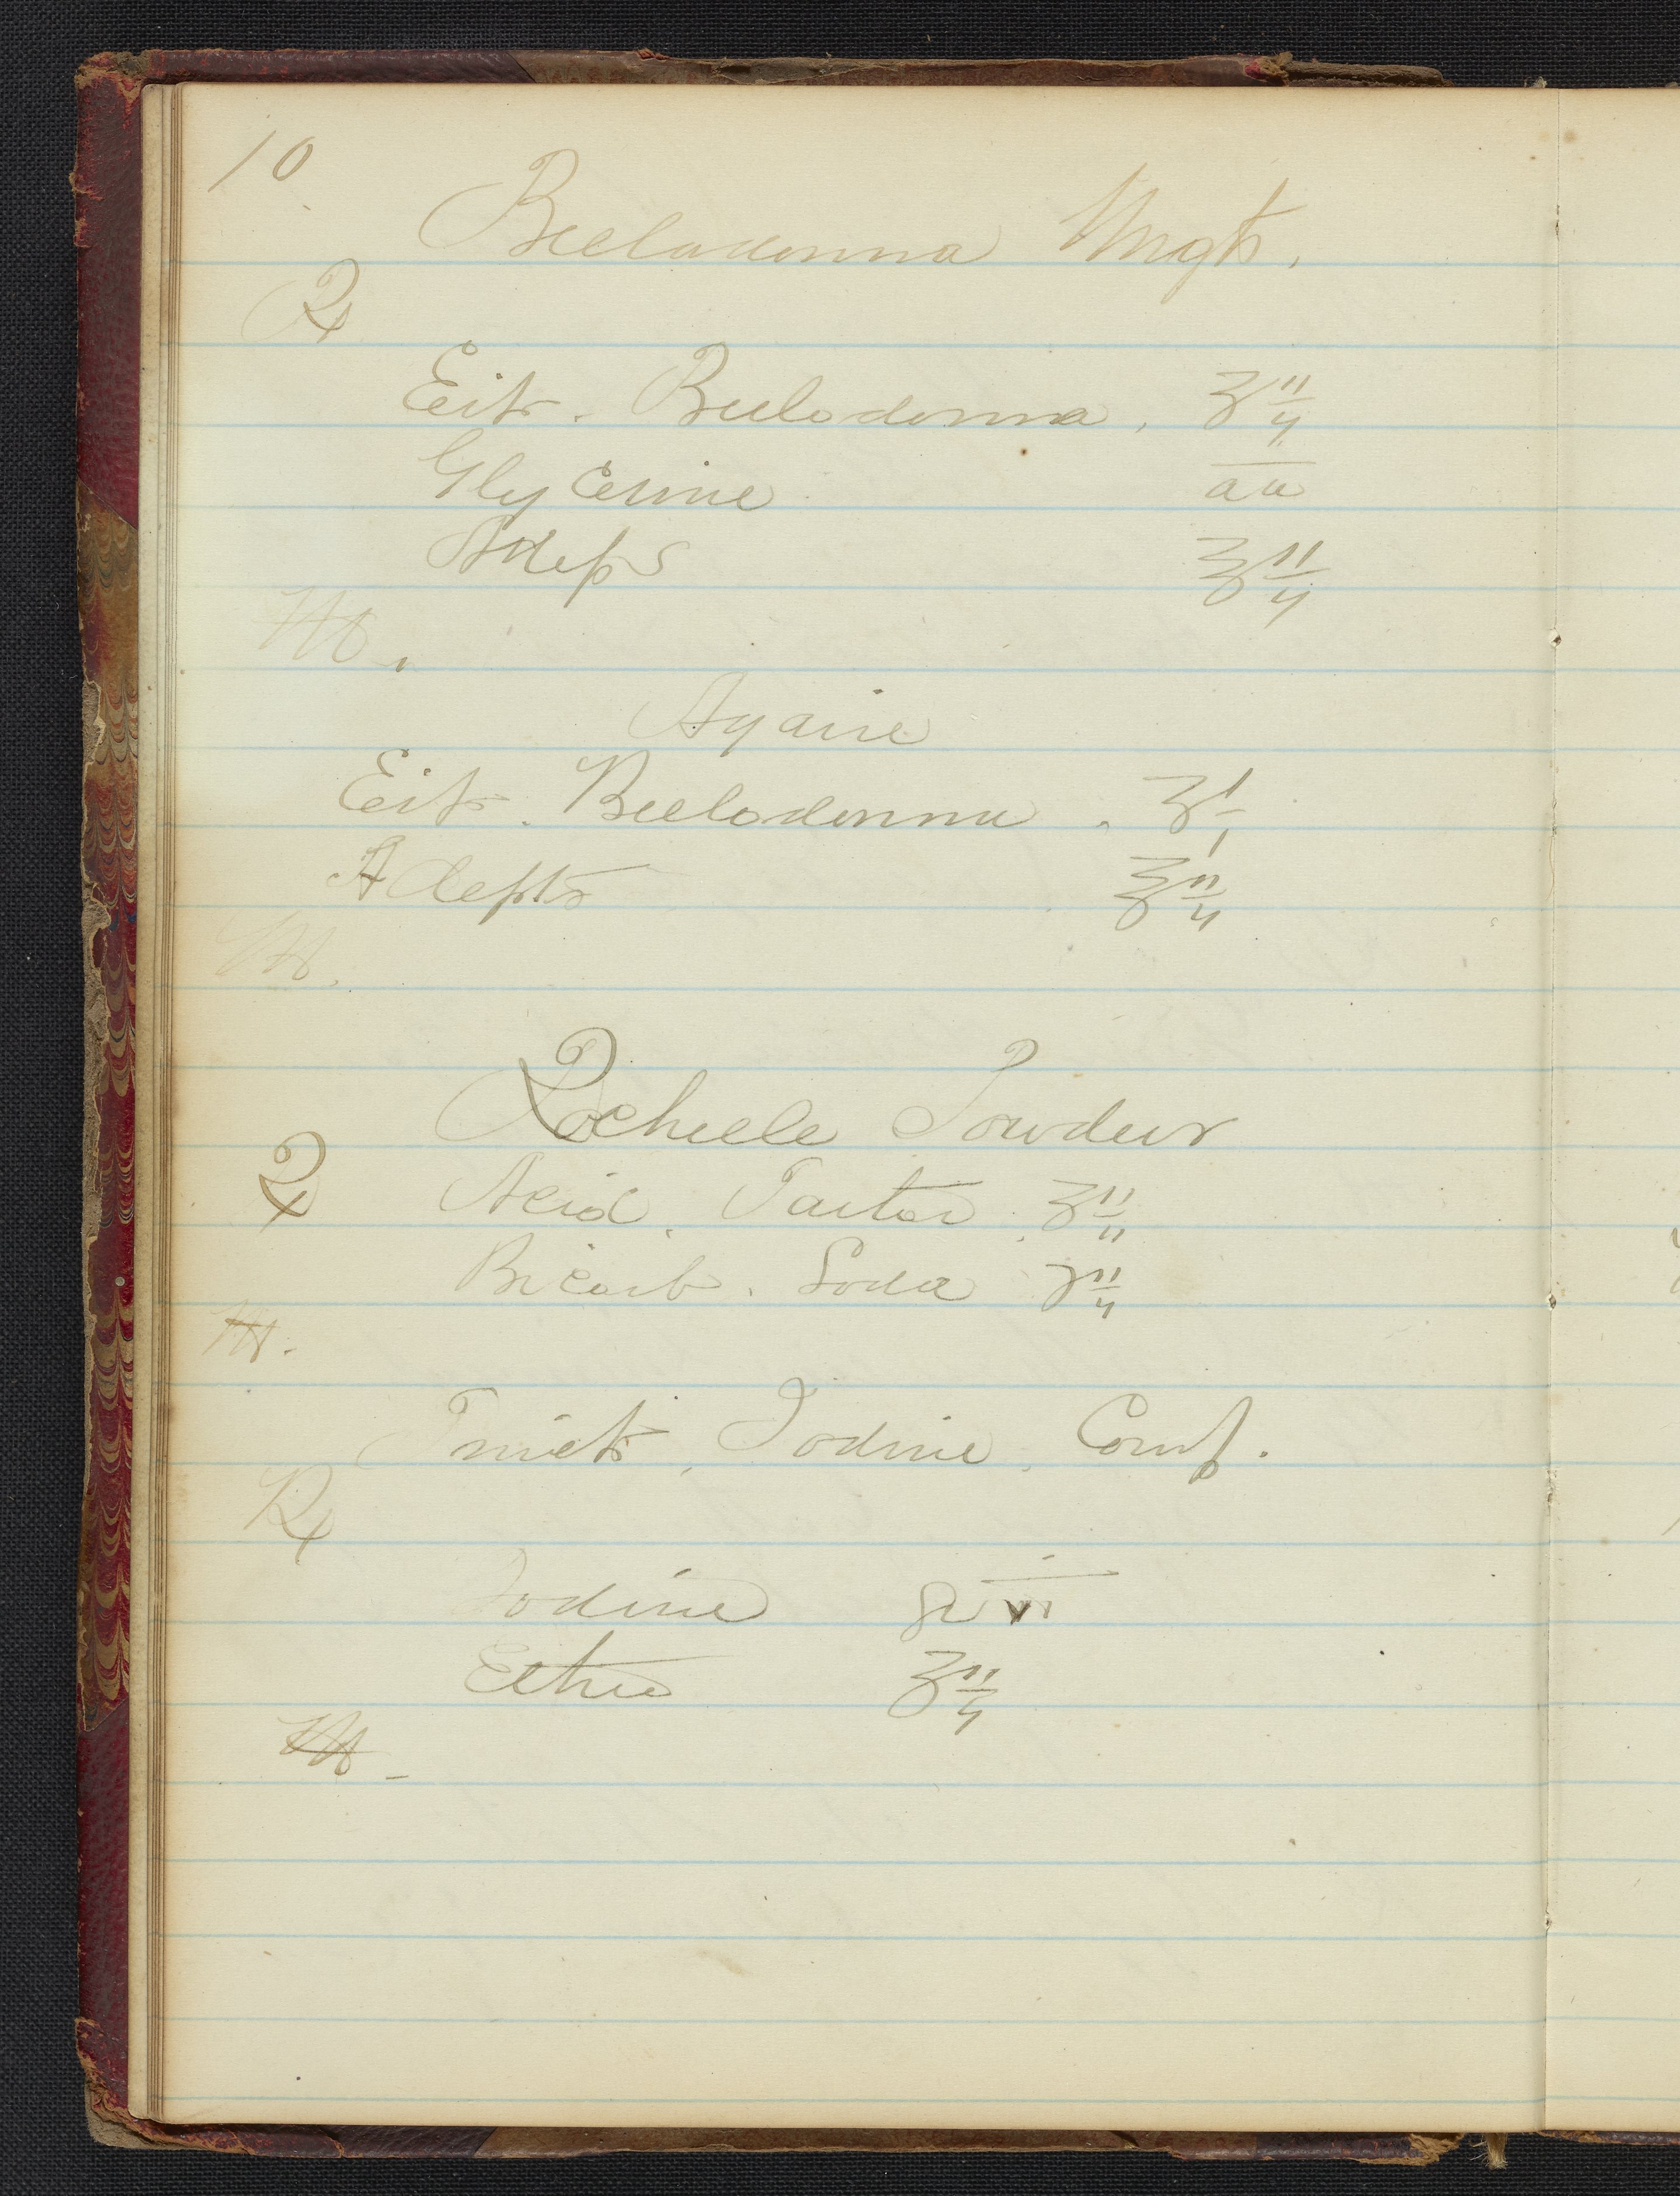 10
Belladonna Ungt.
℞
Ext. Belladonna, ʒ ii
Glycerine a̅a̅
Adeps ℥ ii
M.
Againe
Ext. Belladonna. ʒ i
Adepts ℥ ii
M.
Rochelle Powder
℞ Acid. Tartar ʒ ii
Bicarb. Soda ʒ ii
M.
Tinct, Iodine, Comp.
℞
Iodine gr vi
Ether ℥ ii
M